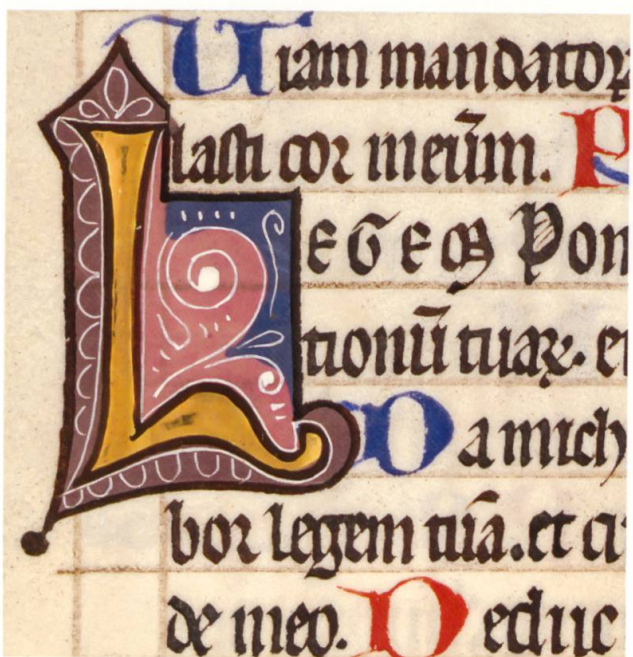 Uiam mandatorꝝ
lasti cor meū. P
LEGEM Pon
tionū tuaꝝ. et
Da mich
bor legem tuā. et cu
de meo. Deduc